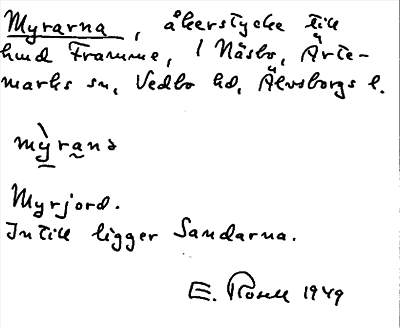 Myrarna, åkerstycke till
hmd Framme, 1 Näsbo, Ärte-
marks sn, Vedbo hd, Älvsborgs l.
mỳrana
Myrjord.
Intill ligger Sandarna.
E. Rosell 1949